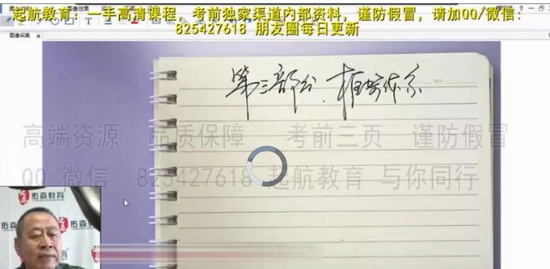 起航教育:一手高清课程,考前独家渠道内部资料,谨防假冒,请加QQ/微信:
825427618 朋友圈每日更新
第三部分.框架体系
高端资源 品质保障 考前三页 谨防假冒
QQ 微信 825427618 起航教育 与你同行
佑森教育